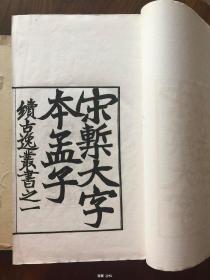 宋槧大字
本孟子
續古逸叢書之一